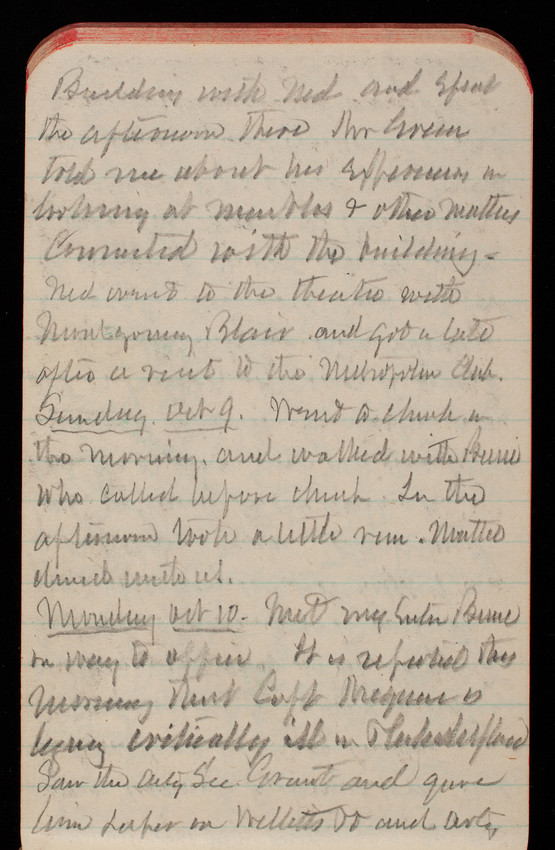 Building with Ned and spent
the afternoon there Mr Green
told me about his experiences in
looking at marbles & other matters
Connected with the building -
Ned went to the theatre with
Montgomery Blair and got in late
after a visit to the Metropolitan Club.
Sunday Oct 9. Went to church in
the morning. and walked with
who called before church. In the
afternoon took a little run. Mattie
dined with us.
Monday Oct 10. Met my Sister
on way to office. It is reported this
morning that Capt is
lying critically ill in
Saw the Actg Sec Grant and gave
him paper on and actg